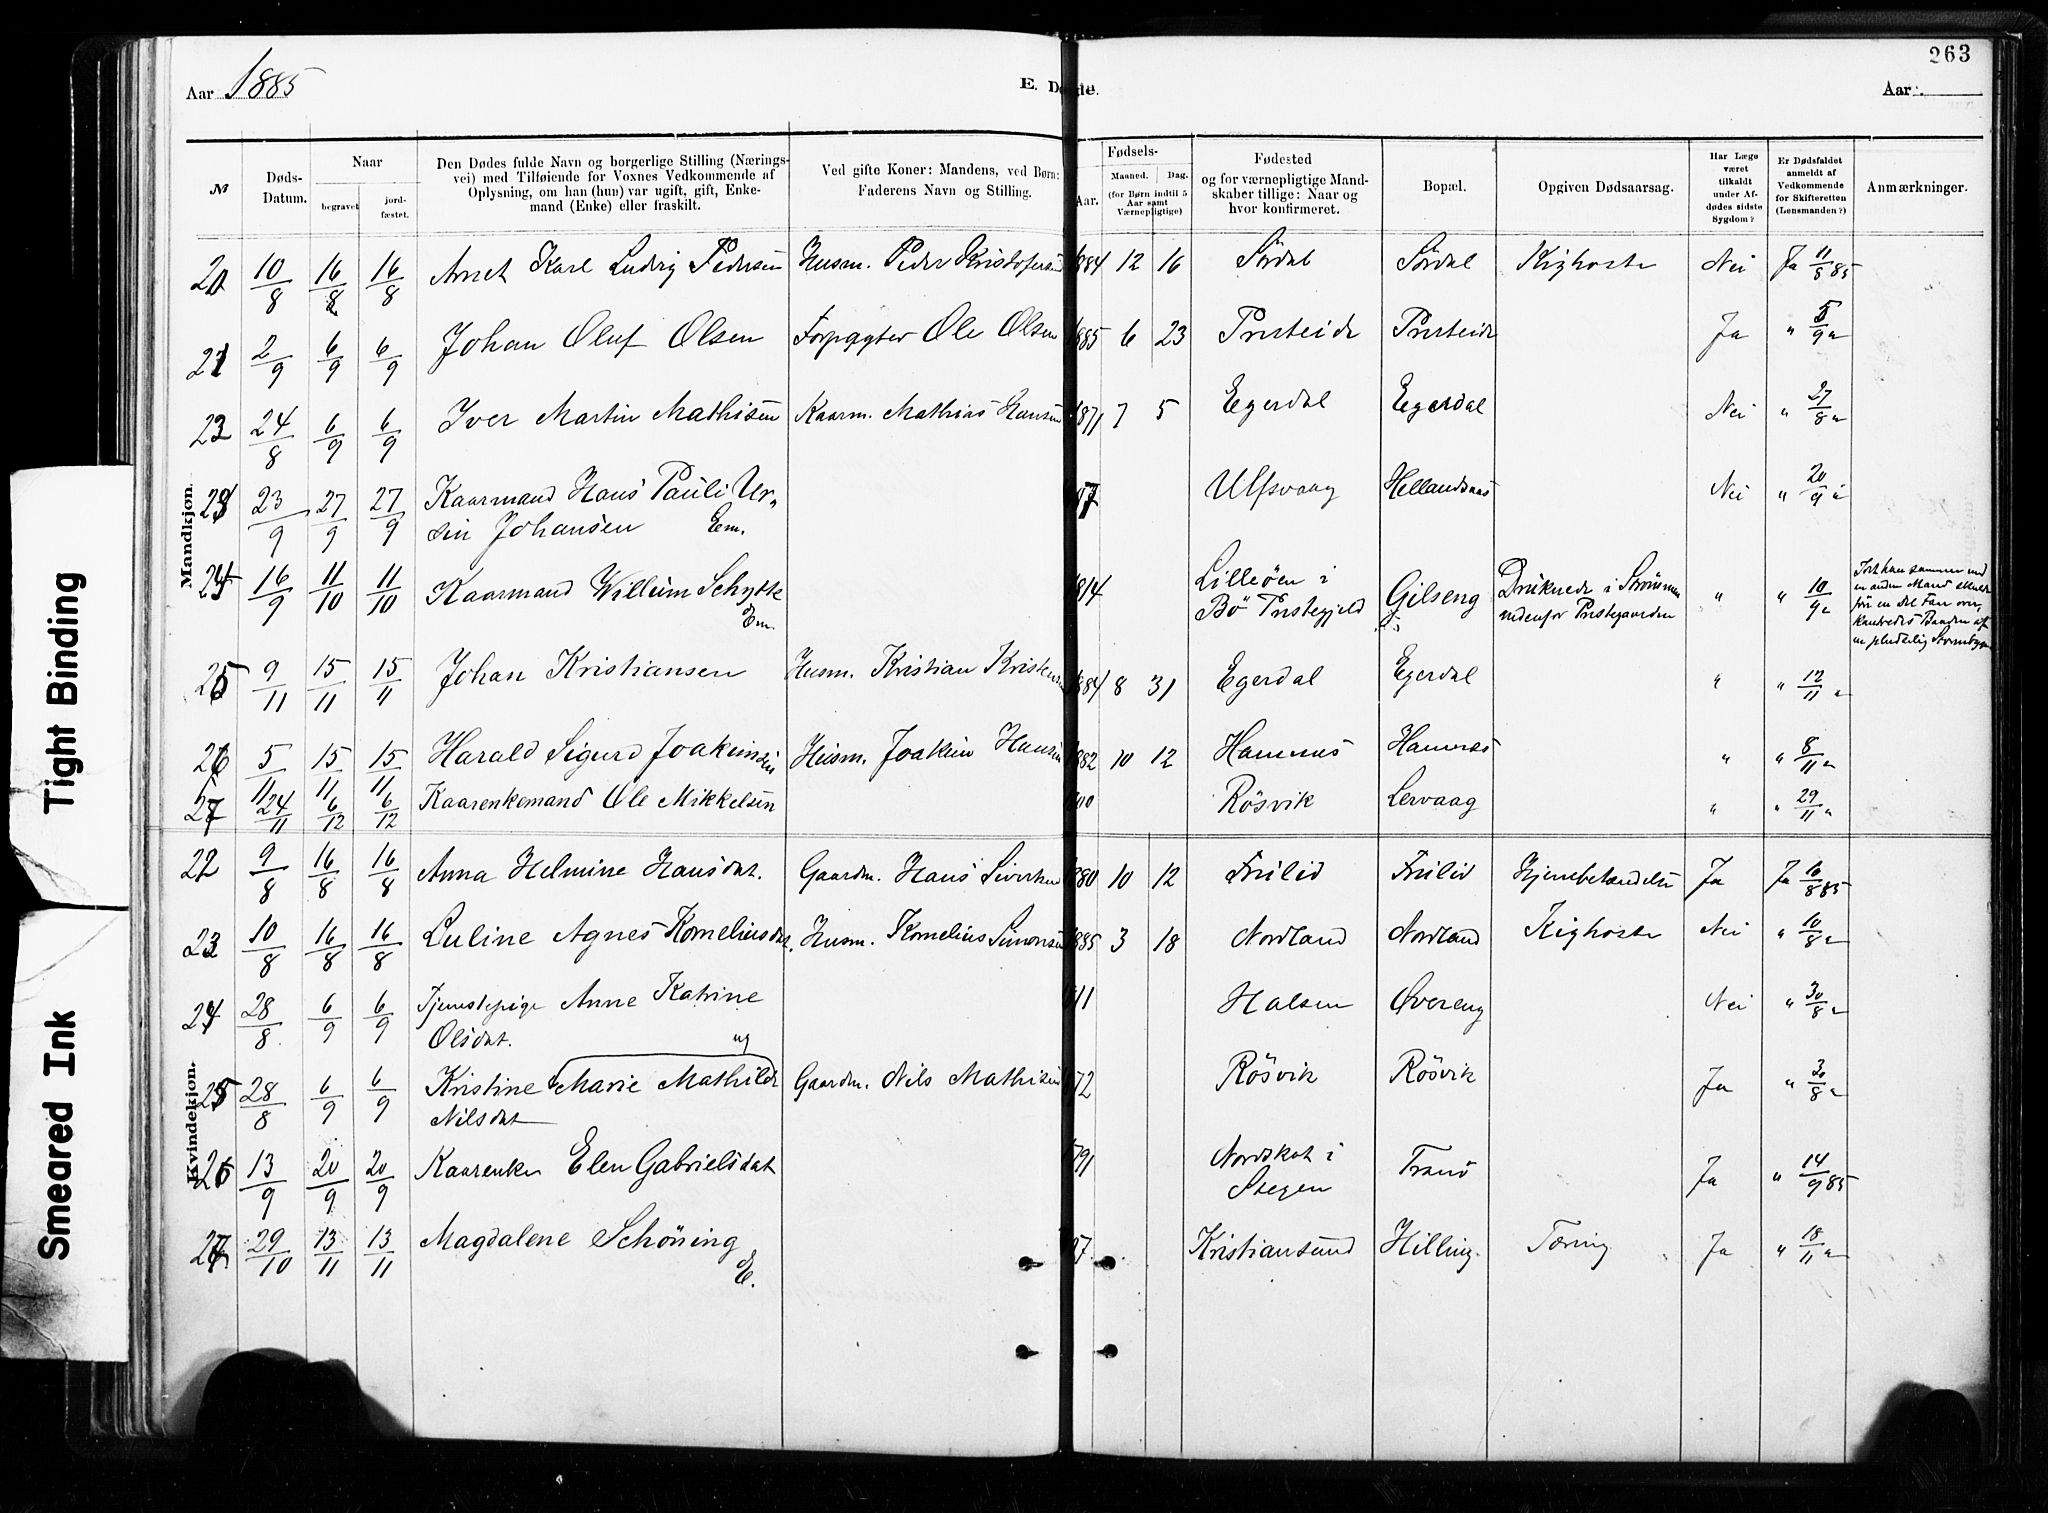 263
Aar 1885
E. Døde.
Aar
№
Døds-Datum.
Naar
begravet
jord-fæstet.
Den Dødes fulde Navn og borgerlige Stilling (Nærings-
vei) med Tilføiende for Voxnes Vedkommende af
Oplysning, om han (hun) var ugift, gift, Enke-
mand (Enke) eller fraskilt.
Ved gifte Koner: Mandens, ved Børn:
Faderens Navn og Stilling.
Fødsels-
Aar.
Maaned.
Dag.
(for Børn indtil 5
Aar samt
Værnepligtige)
Fødested
og for værnepligtige Mand-
skaber tillige: Naar og
hvor konfirmeret.
Bopæl.
Opgiven Dødsaarsag.
Har Læge
været
tilkaldt
under Af-
dødes sidste
Sygdom?
Er Dødsfaldet
anmeldt af
Vedkommende
for Skifteretten
(Lensmanden?)
Anmærkninger.
Mandkjøn.
20 10/8 16/8 16/8 Arnet Karl Ludvig Pedersen Husm. Peder Kristofersen 1884 12 16 Sördal Sördal Kighoste Nei Ja 11/8 85
21 2/9 6/9 6/9 Johan Oluf Olsen Forpagter Ole Olsen 1885 6 23 Presteide Presteide Ja " 5/9 "
22 24/8 6/9 6/9 Iver Martin Mathisen Kaarm. Mathias Hansen 1871 7 5 Egerdal Egerdal Nei " 27/8 "
23 23/9 27/9 27/9 Kaarmand Hans Pauli Ur-
sin Johansen Em. Ulfsvaag Hellandsnes Nei " 20/9 "
24 16/9 11/10 11/10 Kaarmand Willum Schytte
Em. 1814 Lilleöen i
Bö Prestegjeld Gilseng Druknede i Strömmen
nedenfor Prestegaarden " " 10/9 "
Idet han sammen med
en anden Mand skulde
före en Del Faar over,
kantredes Baaden af
en pludselig Stormbyge
25 9/11 15/11 15/11 Johan Kristiansen Husm. Kristian Kristensen 1884 8 31 Egerdal Egerdal " " 12/11 "
26 5/11 15/11 15/11 Harald Sigurd Joakimsen Husm. Joakim Hansen 1882 10 12 Hamnes Hamnes " " 8/11 "
27 24/11 6/12 6/12 Kaarenkemand Ole Mikkelsen Rösvik Lervaag " " 29/11 "
Kvindekjøn.
22 9/8 16/8 16/8 Anna Helmine Hansdat. Gaardm. Hans Sivertsen 1880 10 12 Fiulid Fiulid Hjernebetændelse Ja Ja 16/8 85
23 10/8 16/8 16/8 Luline Agnes Korneliusdat. Husm. Kornelius Simonsen 1885 3 18 Nordland Nordland Kighoste Nei " 10/8 "
24 28/8 6/9 6/9 Tjenestepige Anne Katrine
Olsdat. ug Halsen Övereng Nei " 30/8 "
25 28/8 6/9 6/9 Kristine Marie Mathilde
Nilsdat Gaardm. Nils Mathisen 1872 Rösvik Rösvik Ja " 30/8 "
26 13/9 20/9 20/9 Kaarenke Elen Gabrielsdat 1791 Nordskot i
Stegen Tranö Ja " 14/9 85
27 29/10 13/11 13/11 Magdalene Schöning
E. Kristiansund Hilling. Tæring Ja " 18/11 "
Tight Binding
Smeared Ink